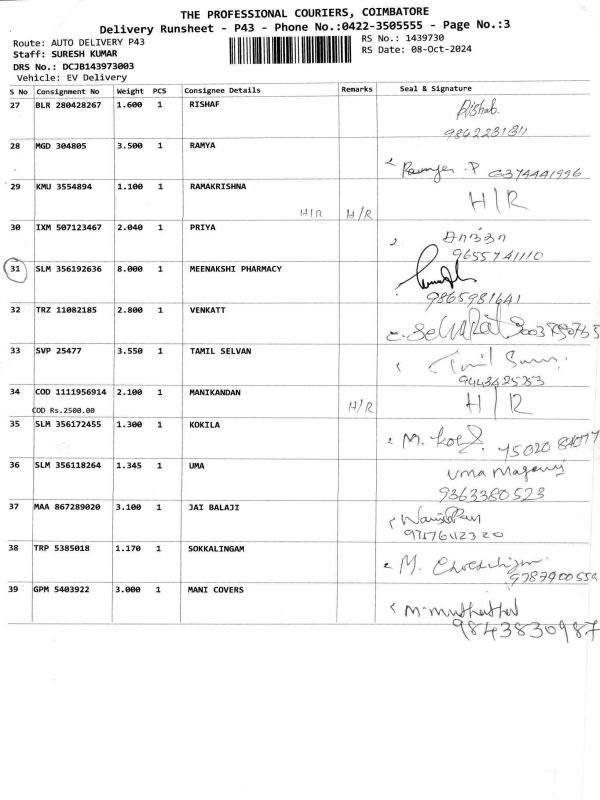 THE PROFESSIONAL COURIERS, COIMBATORE
Delivery Runsheet - P43 - Phone No.:0422-3505555 - Page No.:3
Route: AUTO DELIVERY P43
RS No.: 1439730
Staff: SURESH KUMAR
RS Date: 08-Oct-2024
DRS No.: DCJB143973003
Vehicle: EV Delivery
S No Consignment No Weight PCS Consignee Details Remarks Seal & Signature
27 BLR 280428267 1.600 1 RISHAF Rishab.
28 MGD 304805 3.500 1 RAMYA
29 KMU 3554894 1.100 1 RAMAKRISHNA H/R
H/R H/R
30 IXM 507123467 2.040 1 PRIYA
9655741110
31 SLM 356192636 8.000 1 MEENAKSHI PHARMACY
9865981641
32 TRZ 11082185 2.800 1 VENKATT
33 SVP 25477 3.550 1 TAMIL SELVAN
34 COD 1111956914 2.100 1 MANIKANDAN H/R
COD Rs.2500.00 H/R
35 SLM 356172455 1.300 1 KOKILA
36 SLM 356118264 1.345 1 UMA Uma
9363380523
37 MAA 867289020 3.100 1 JAI BALAJI
38 TRP 5385018 1.170 1 SOKKALINGAM M.
39 GPM 5403922 3.000 1 MANI COVERS
9843830987